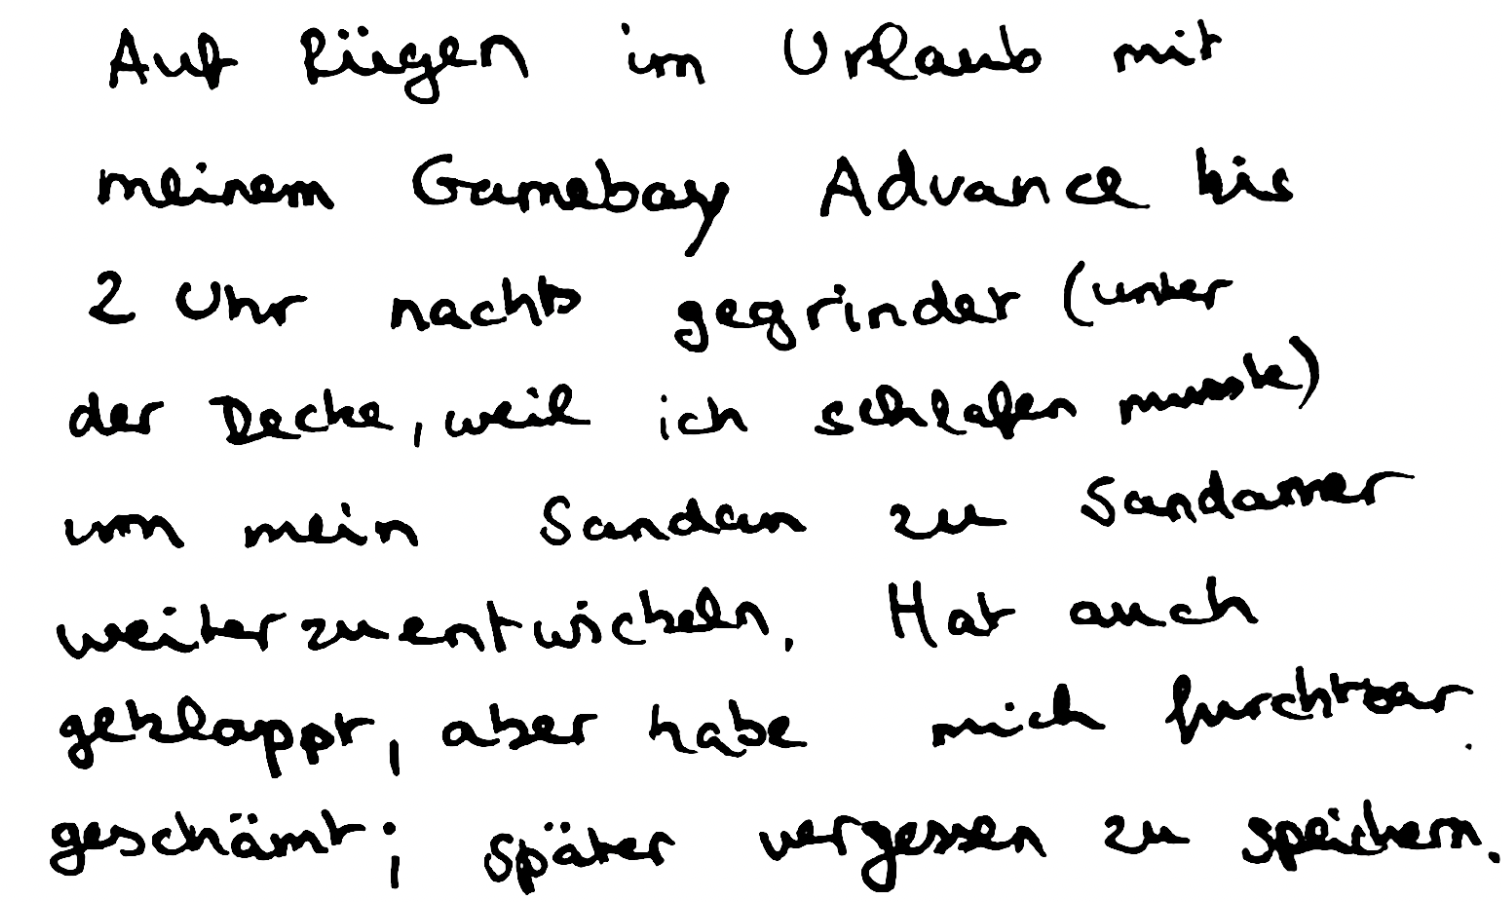 Auf Rügen im Urlaub mit
meinem Gameboy Advance bis
2 Uhr nachts gegrindet (unter
der Decke, weil ich schlafen musste)
um mein Sandan zu Sandamer
weiterzuentwickeln. Hat auch
geklappt, aber habe mich furchtbar
geschämt; später vergessen zu speichern.